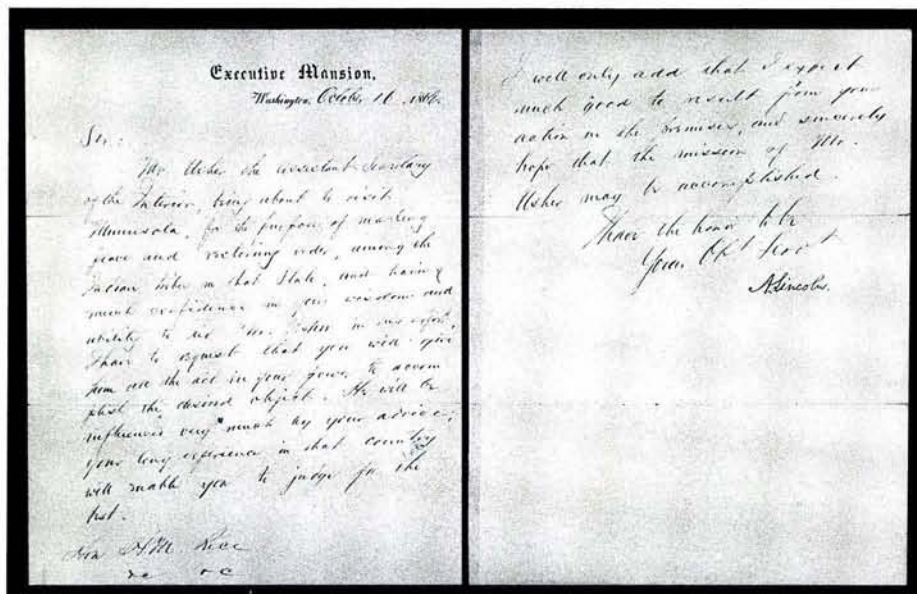 Executive Mansion,
Washington, October 16, 1862.
Sir:
Mr. Usher the Assistant Secretary
of the Interior, being about to visit
Minnesota, for the purpose of making
peace and restoring order, among the
Indian tribes in that State, and having
much confidence in your wisdom and
ability to aid Mr. Usher in his effort,
I have to request that you will give
him all the aid in your power to accom
plish the desired object. He will be
influenced very much by your advice,
your long experience in that country
will enable you to judge for the
best.
Hon H M. Rice
&c &c
I will only add that I expect
much good to result from your
action in the premises, and sincerely
hope that the mission of Mr.
Usher may be accomplished.
I have the honor to be
Your Obt Servt
A. Lincoln.